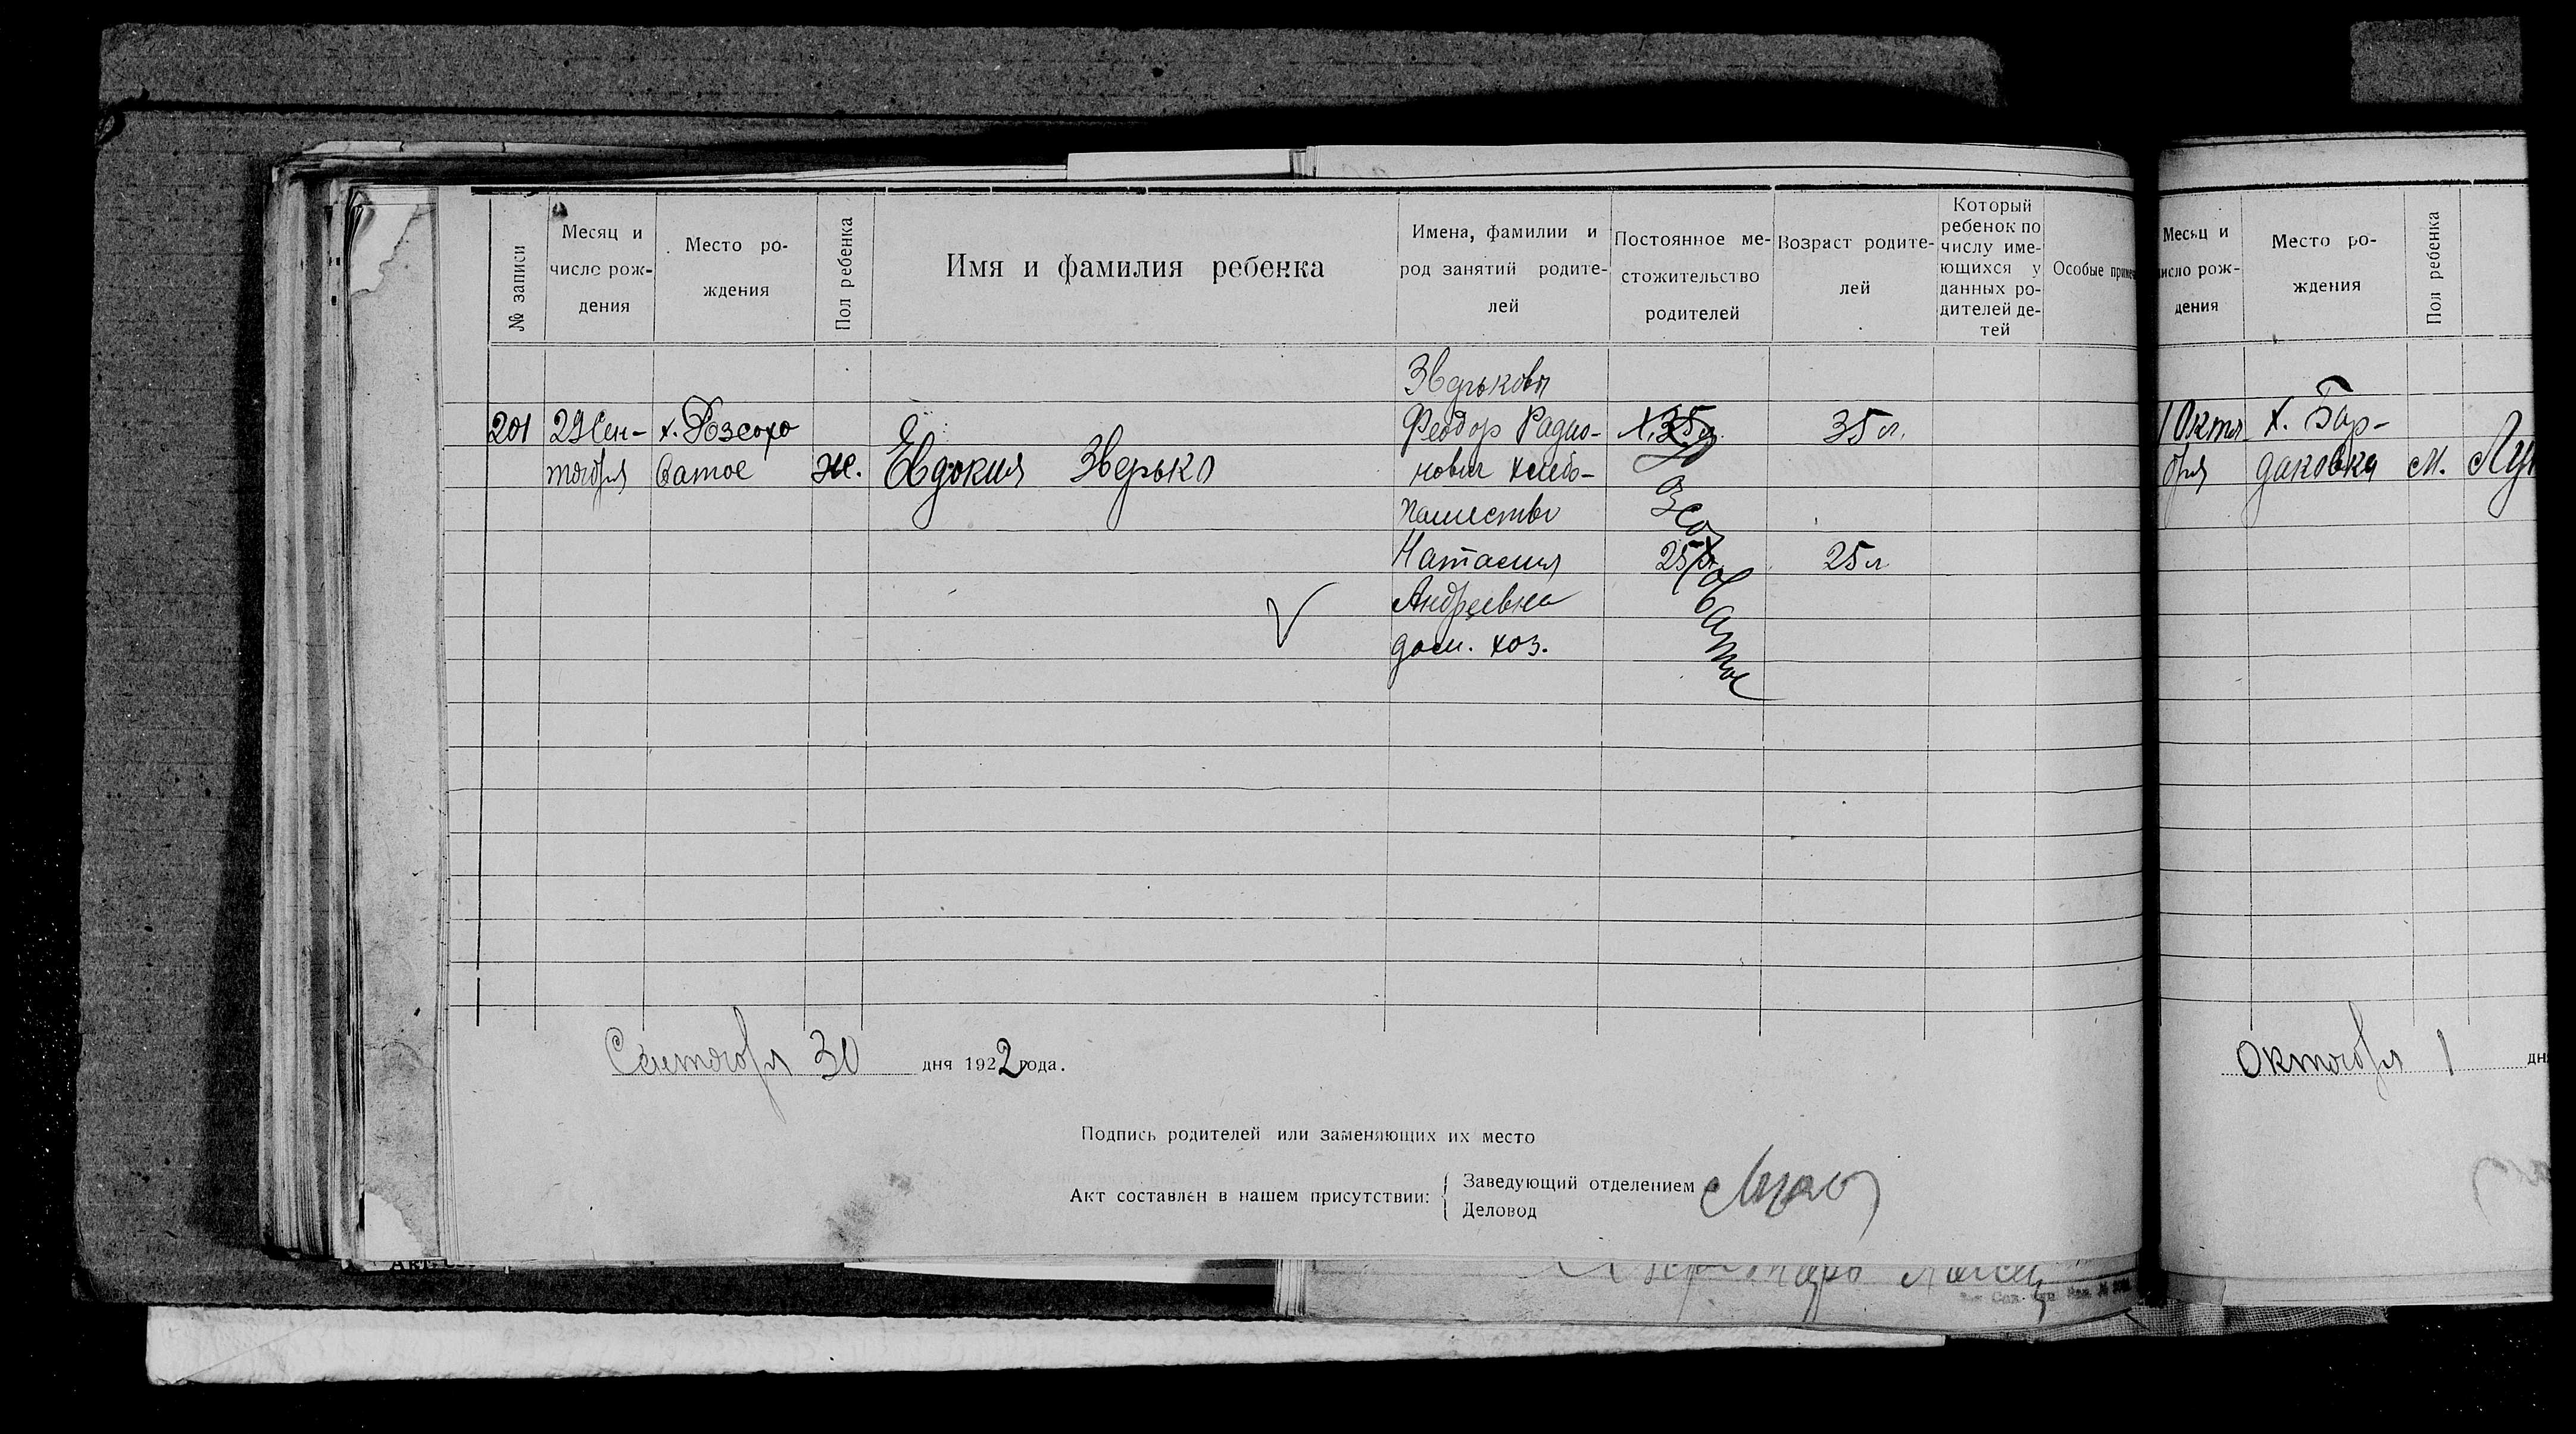 № записи
Месяц и
число рож-
дения
Место ро-
ждения
Пол ребенка
Имя и фамилия ребенка
Имена, фамилии и
род занятий родите-
лей
Постоянное ме-
стожительство
родителей
Возраст родите-
лей
Который
ребенок по
числу име-
ющихся у
данных ро-
дителей де-
тей
Особые
Зверьковы
201 29 Сен- х. Розсохо Феодор Радио- 35 л.
тября ватое ж. Евдокия Зверько нович хлебо-
пашество
Наталия 25 л
Андреевна
дом. хоз.
Сентября 30 дня 1922 года.
Подпись родителей или заменяющих их место
Акт составлен в нашем присутствии:
Заведующий отделением
Деловод
Месяц и
число рож-
дения
Место ро-
ждения
Пол ребенка
1 Октя х. Бар-
бря даковка м.
Октября 1